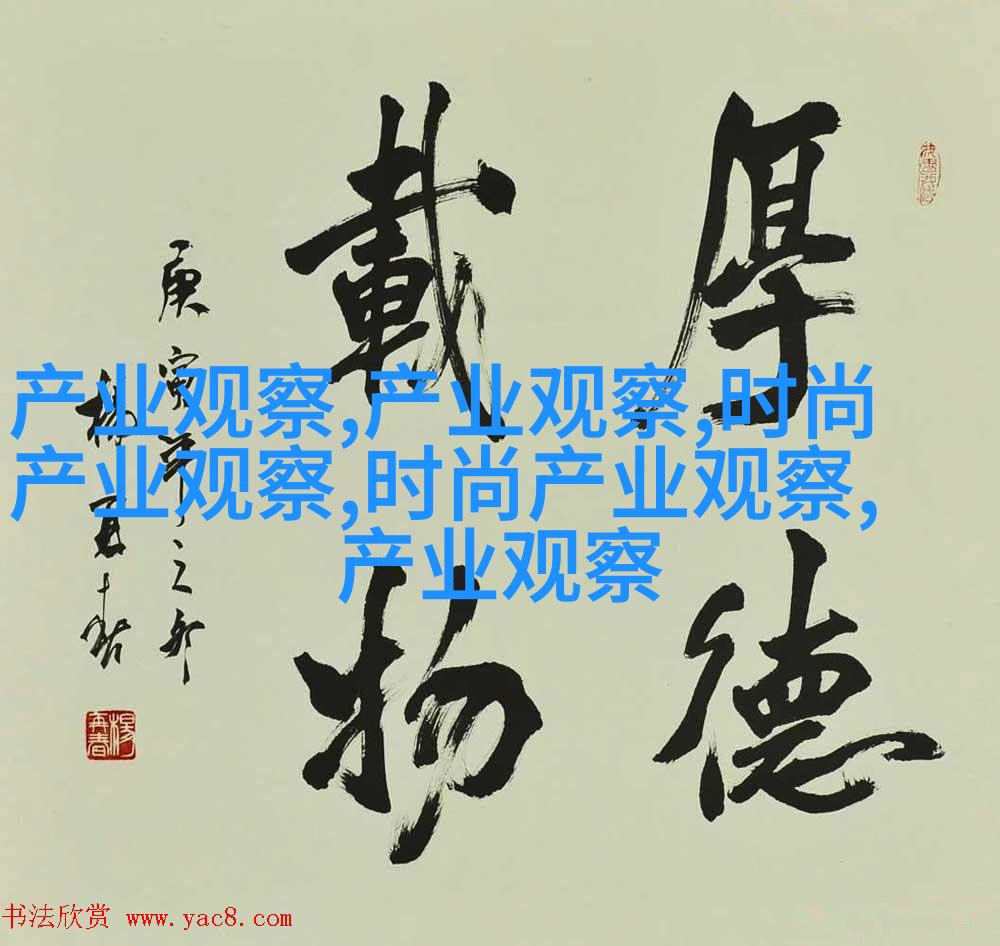 厚德
載物
庚寅年之春
楊再春
楊再春
产业观察,产业观察,时尚
产业观察,时尚产业观察,
产业观察
书法欣赏 www.yac8.com